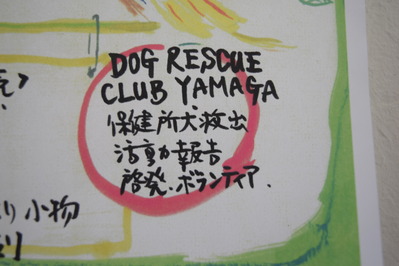 DOG RESCUE
CLUB YAMAGA
保健所犬救出
活動報告
啓発.ボランティア.
り小物